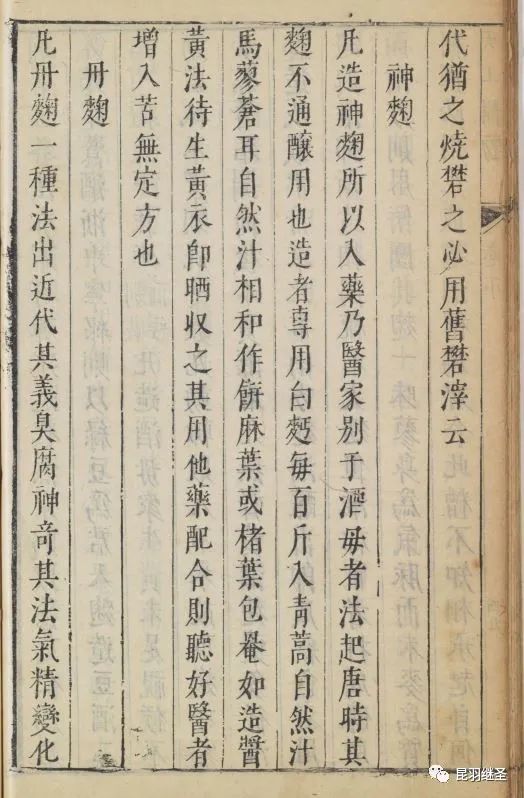 代猶之燒礬之必用舊礬滓云
神麴
凡造神麴所以入藥乃醫家别于酒毋者法起唐時其
麴不通釀用也造者専用白麫每百斤入青蒿自然汁
馬蓼蒼耳自然汁相和作餅麻葉或楮葉包罨如造醬
黄法待生黄衣卽晒収之其用他藥配合則聽好醫者
增入苦無定方也
丹麴
凡丹麴一種法出近代其義臭腐神奇其法氣精變化
昆羽继圣